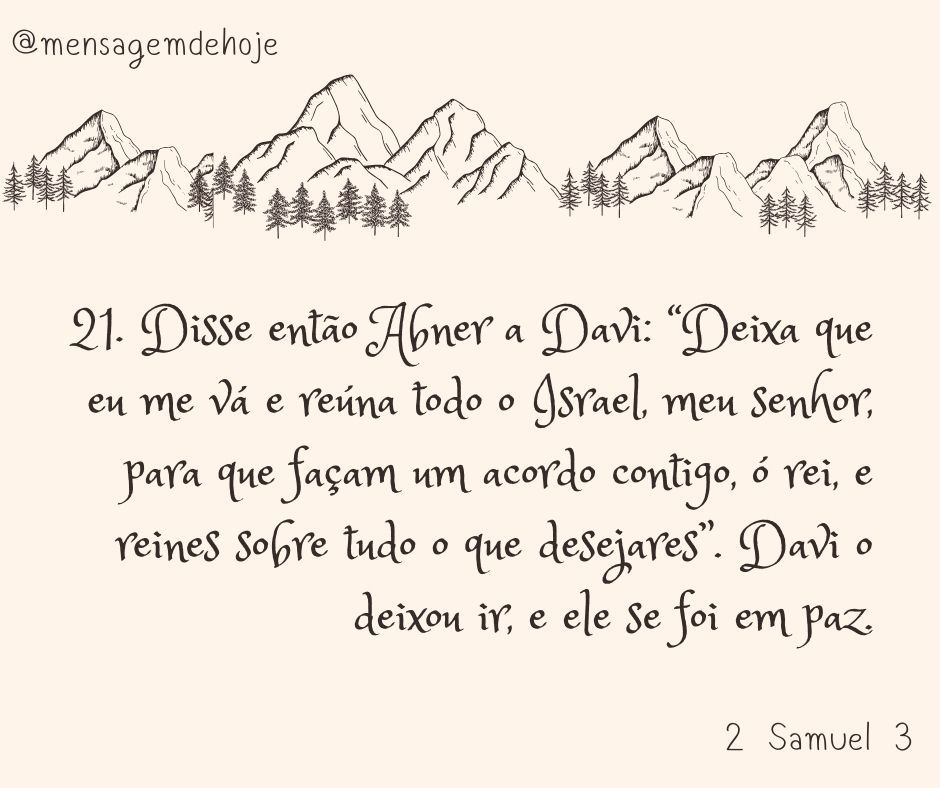 @mensagemdehoje
21. Disse então Abner a Davi: “Deixa que
eu me vá e reúna todo o Israel, meu senhor,
para que façam um acordo contigo, ó rei, e
reines sobre tudo o que desejares”. Davi o
deixou ir, e ele se foi em paz.
2 Samuel 3